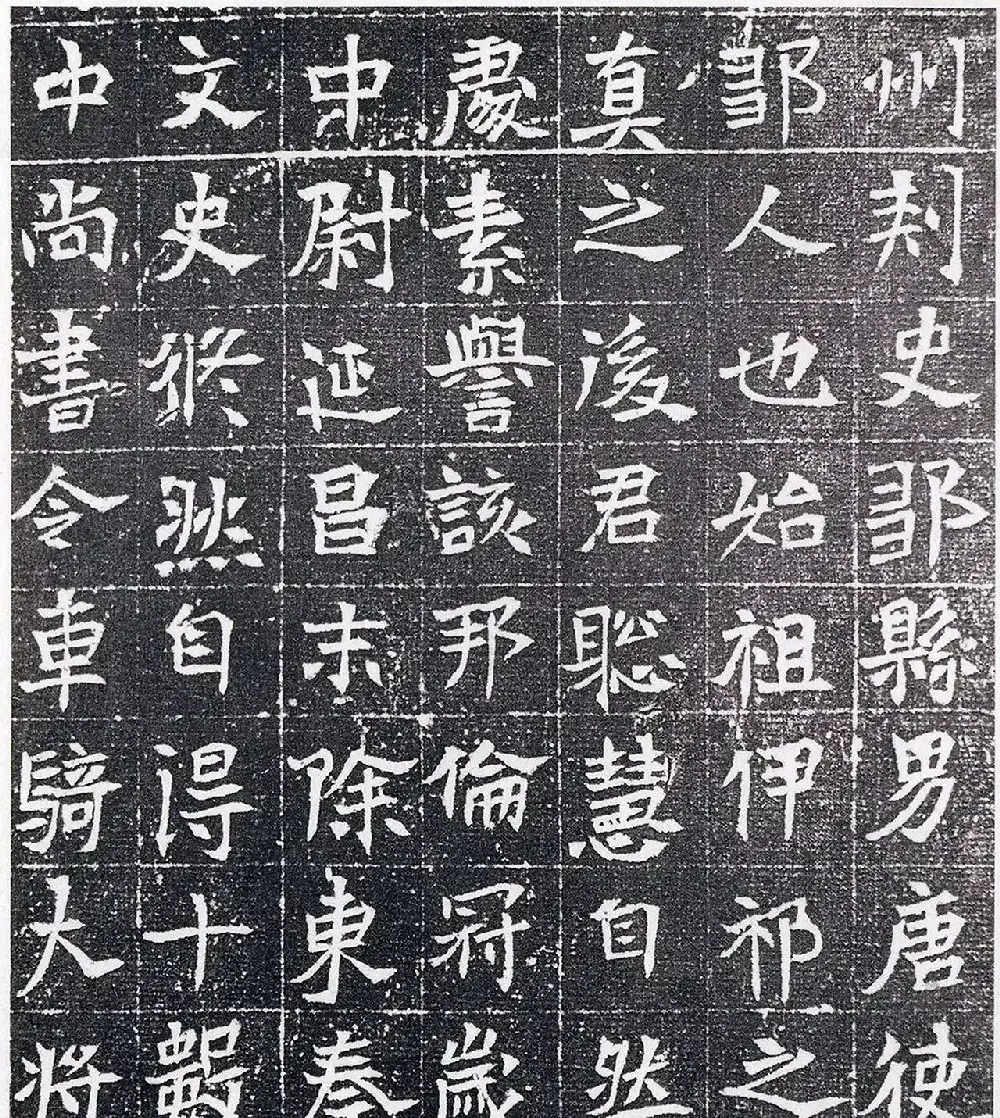 州刾史鄒縣男唐使
鄒人也始祖伊祁之
真之後君聡慧自然
處素譽該邦倫冠歲
中尉延昌末除東秦
文史然自得十數
中尚書令車騎大將